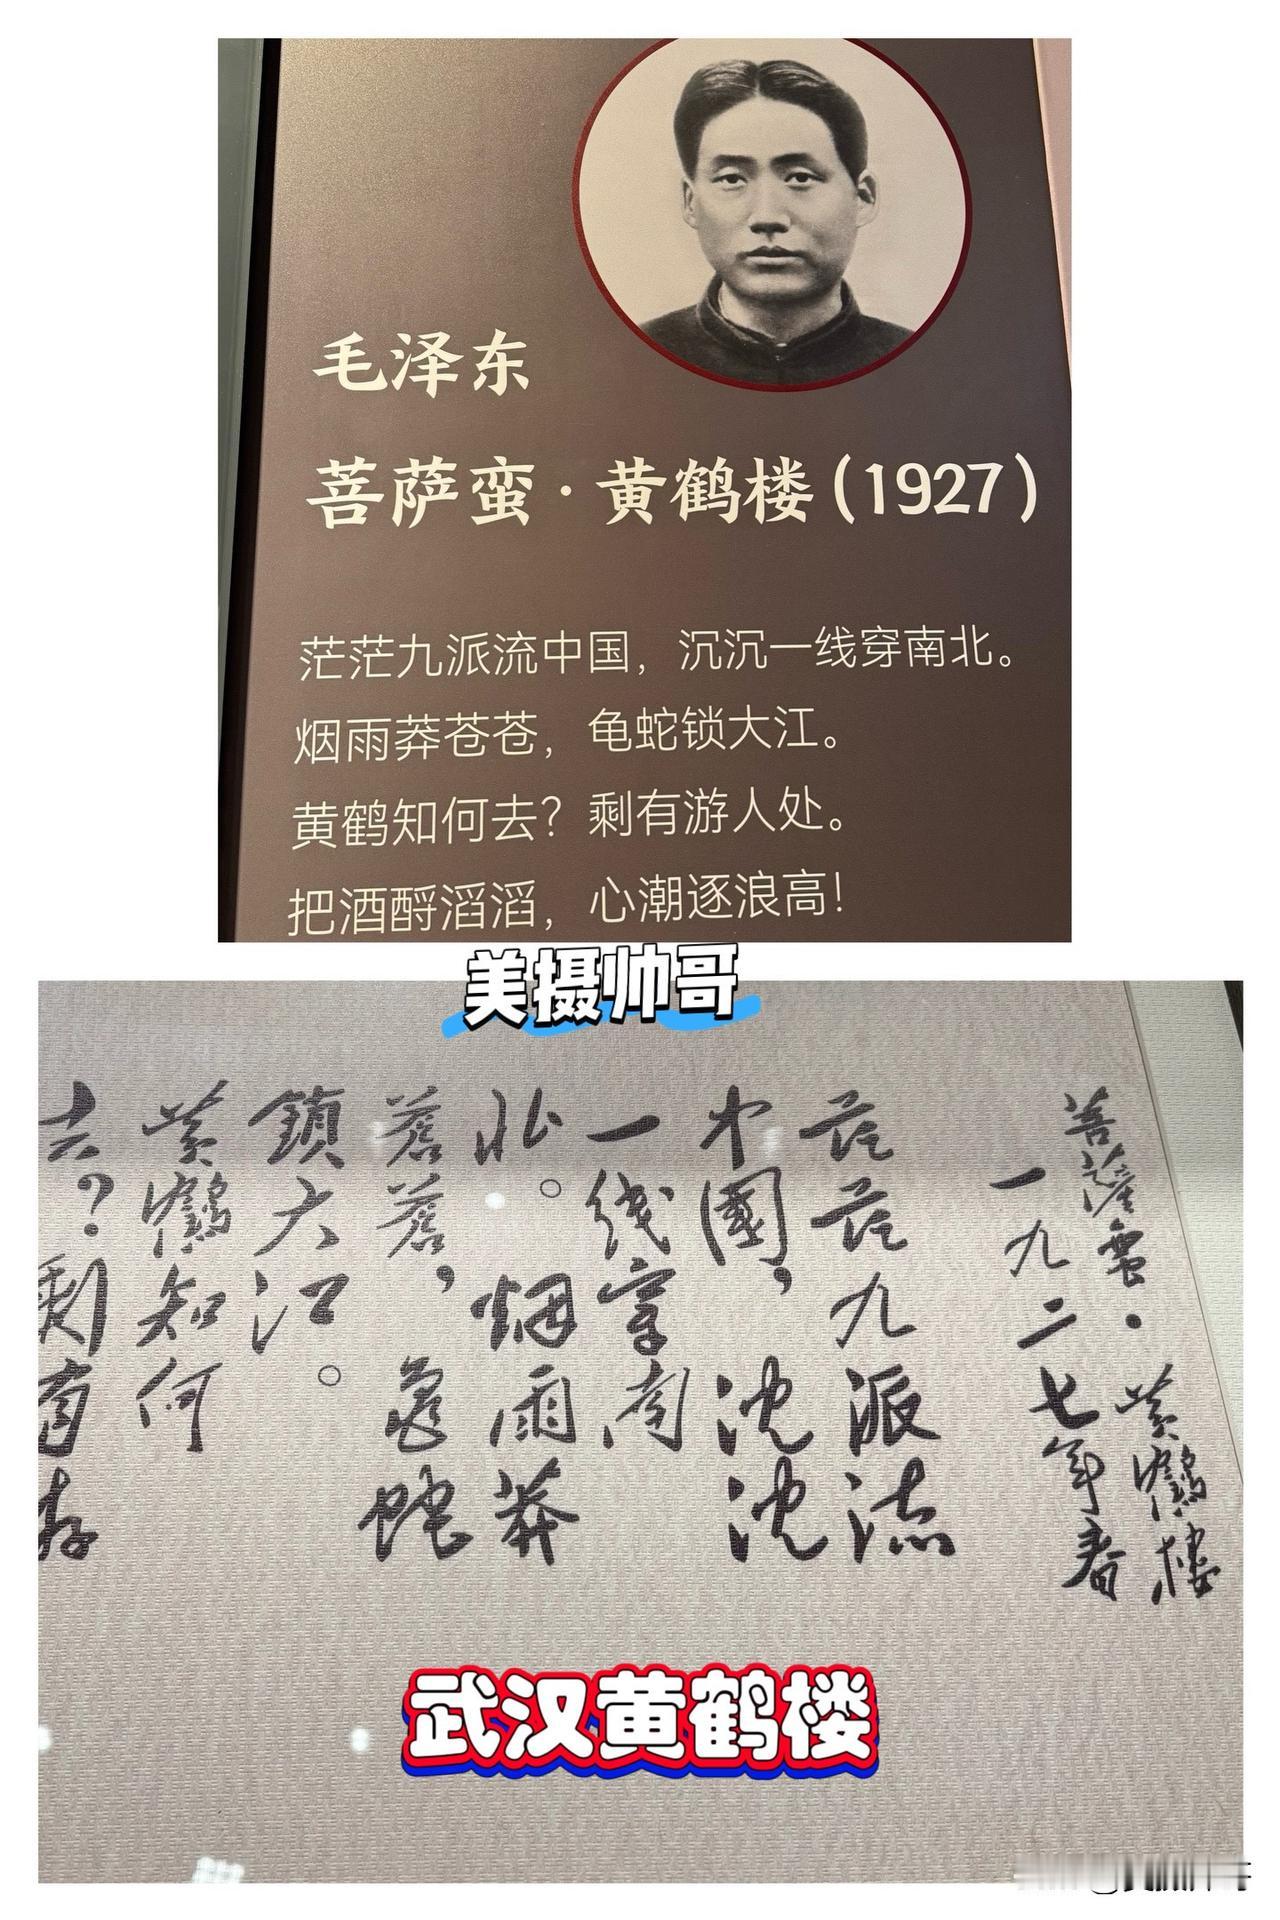 毛泽东
菩萨蛮·黄鹤楼(1927)
茫茫九派流中国，沉沉一线穿南北。
烟雨莽苍苍，龟蛇锁大江。
黄鹤知何去？剩有游人处。
把酒酹滔滔，心潮逐浪高！
美摄帅哥
菩薩蛮·黄鶴楼
一九二七年春
茫茫九派流
中國，沈沈
一线穿南
北。烟雨莽
蒼蒼，龟蛇
鎖大江。
黄鶴知何
去？剩有游
武汉黄鹤楼